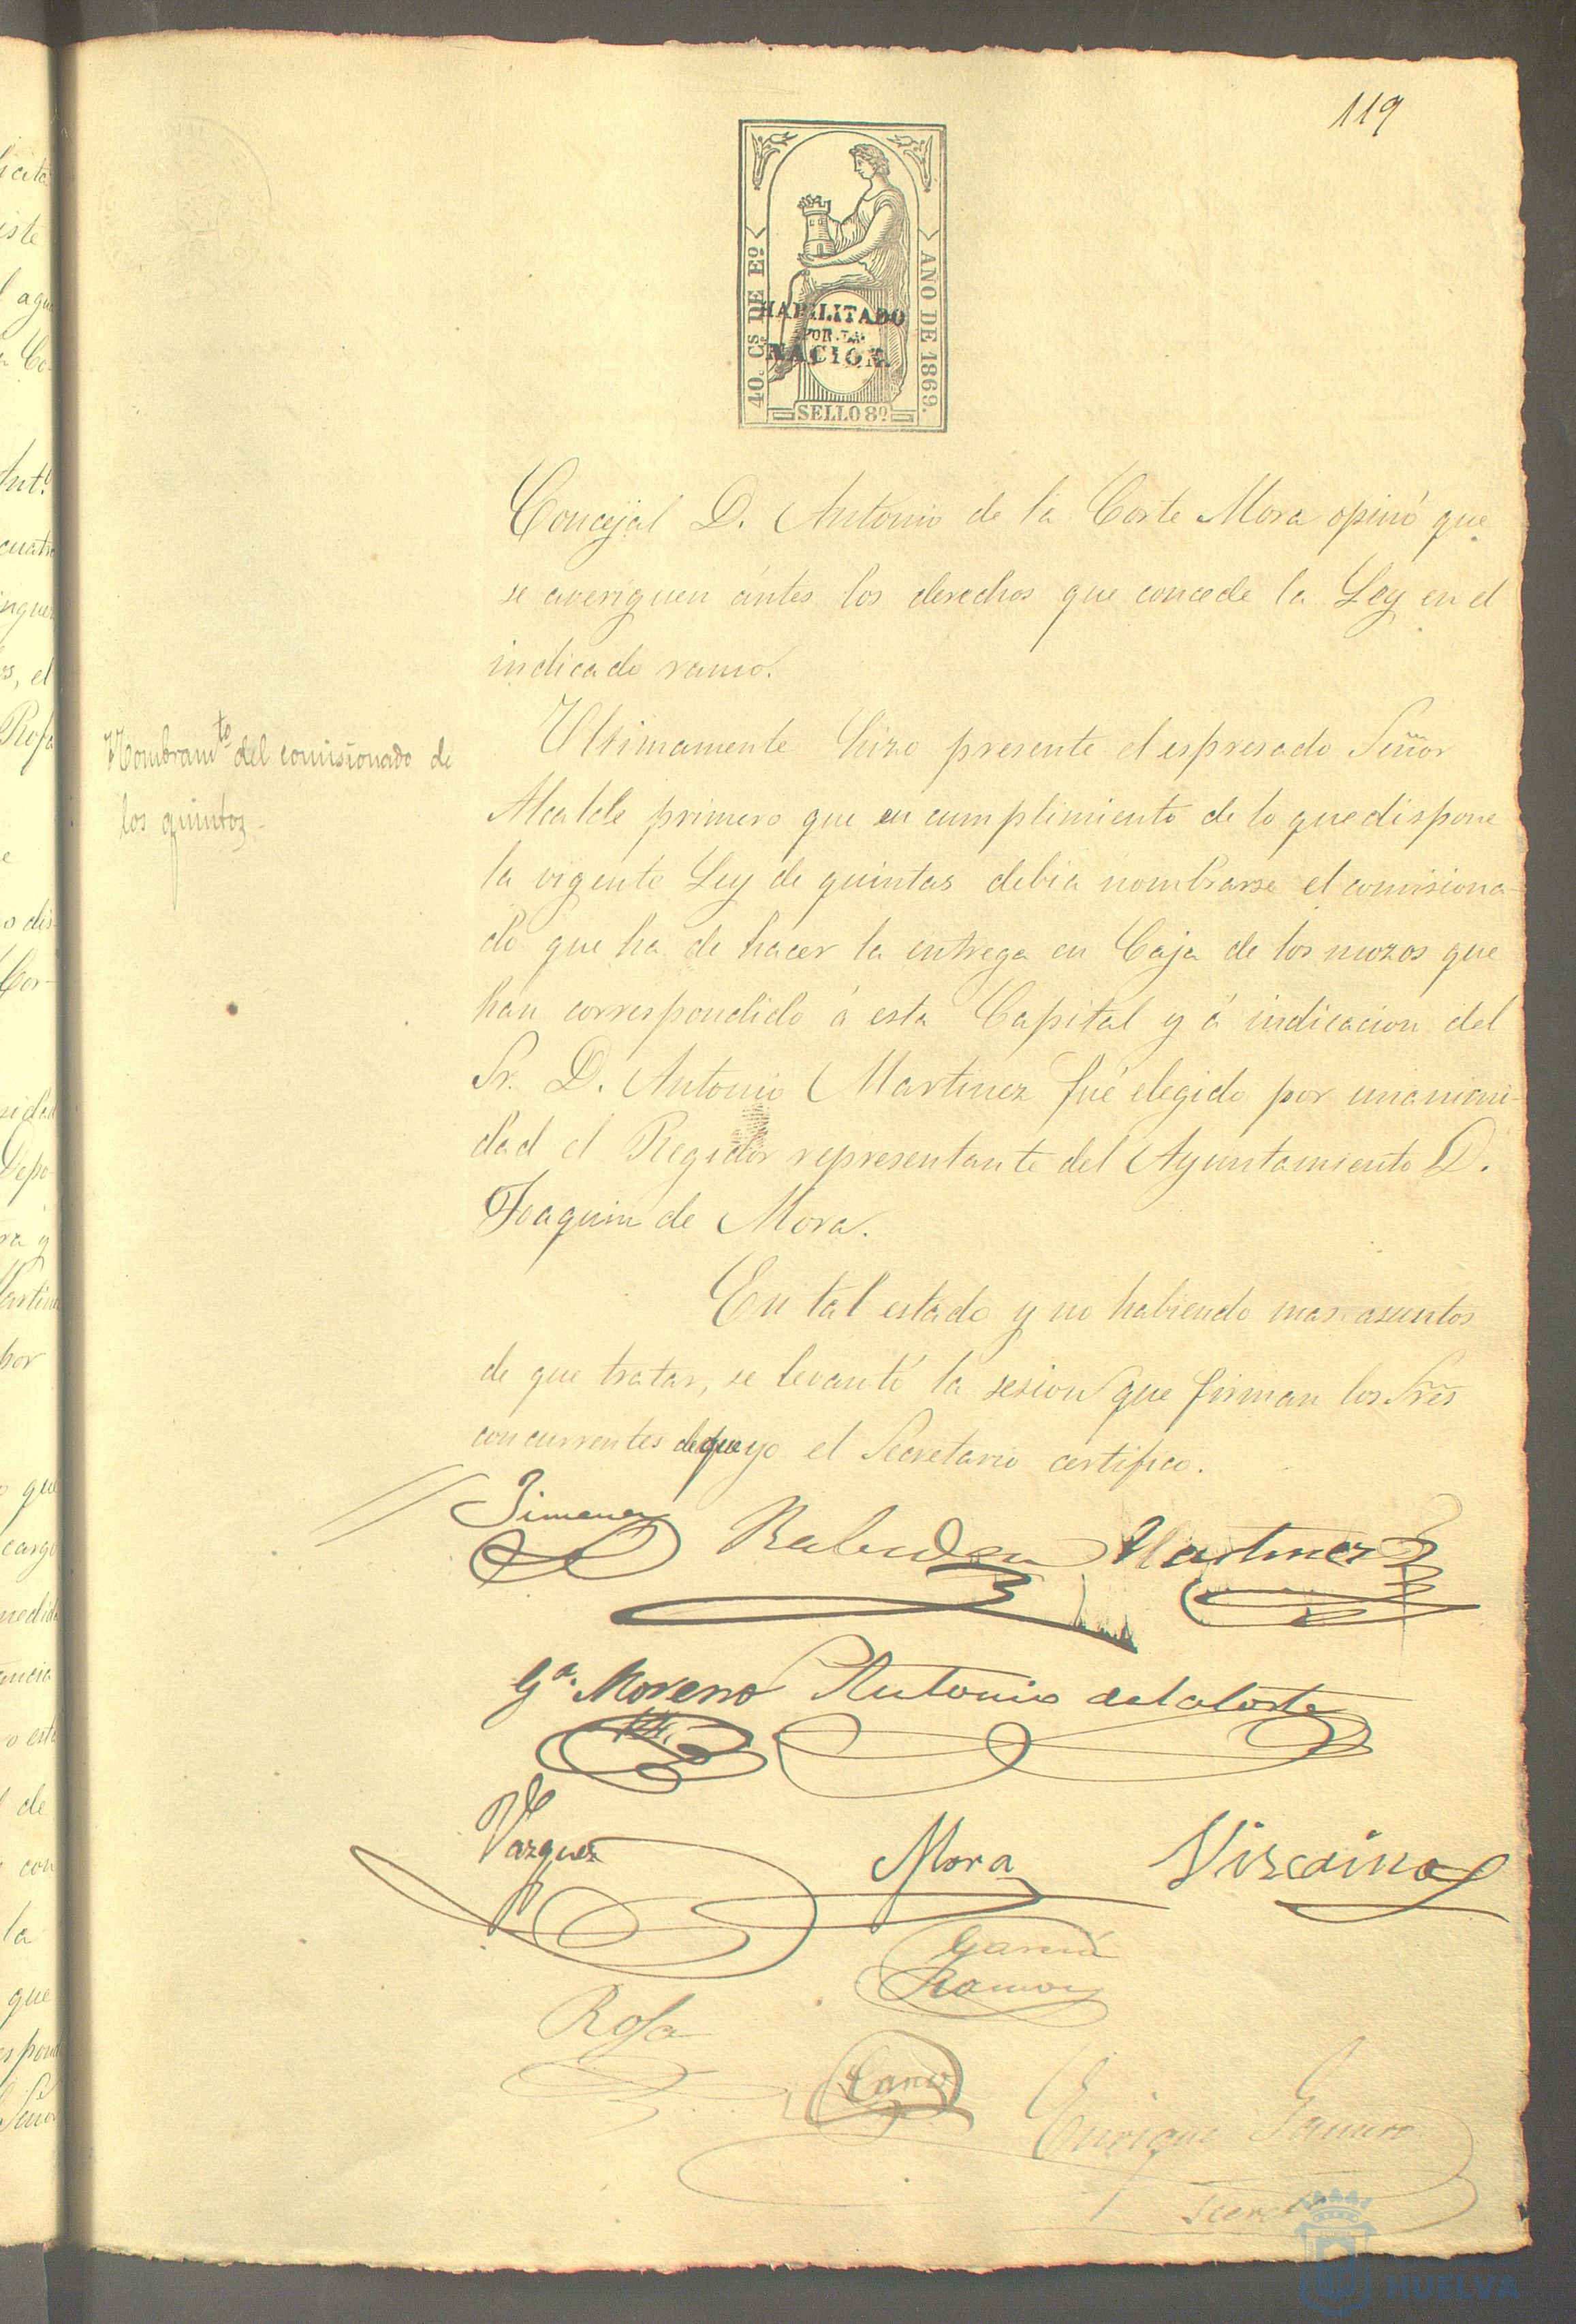 119
40. Cs. DE Eº
AÑO DE 1869.
HABILITADO
POR LA
NACION.
SELLO 8º
Concejal D. Antonio de la Corte Mora opinó que
se averiguen ántes los derechos que concede la Ley en el
indicado ramo.
Nombramto del comisionado de
los quintos.
Ultimamente hizo presente el espresado Señor
Alcalde primero que en cumplimiento de lo que dispone
la vigente Ley de quintas debia nombrarse el comisiona-
do que ha de hacer la entrega en Caja de los mozos que
han correspondido á esta Capital y á indicacion del
Sr. D. Antonio Martinez fué elegido por unanimi-
dad el Regidor representante del Ayuntamiento D.
Joaquin de Mora.
En tal estado y no habiendo mas asuntos
de que tratar, se levantó la sesion que firman los Sres
concurrentes de que yo el Secretario certifico.
Jimenez Martinez
Ga. Moreno Antonio de la Corte
Vazquez Mora Vizcaino
Garcia
Ramos
Rosa
Enrique
HUELVA